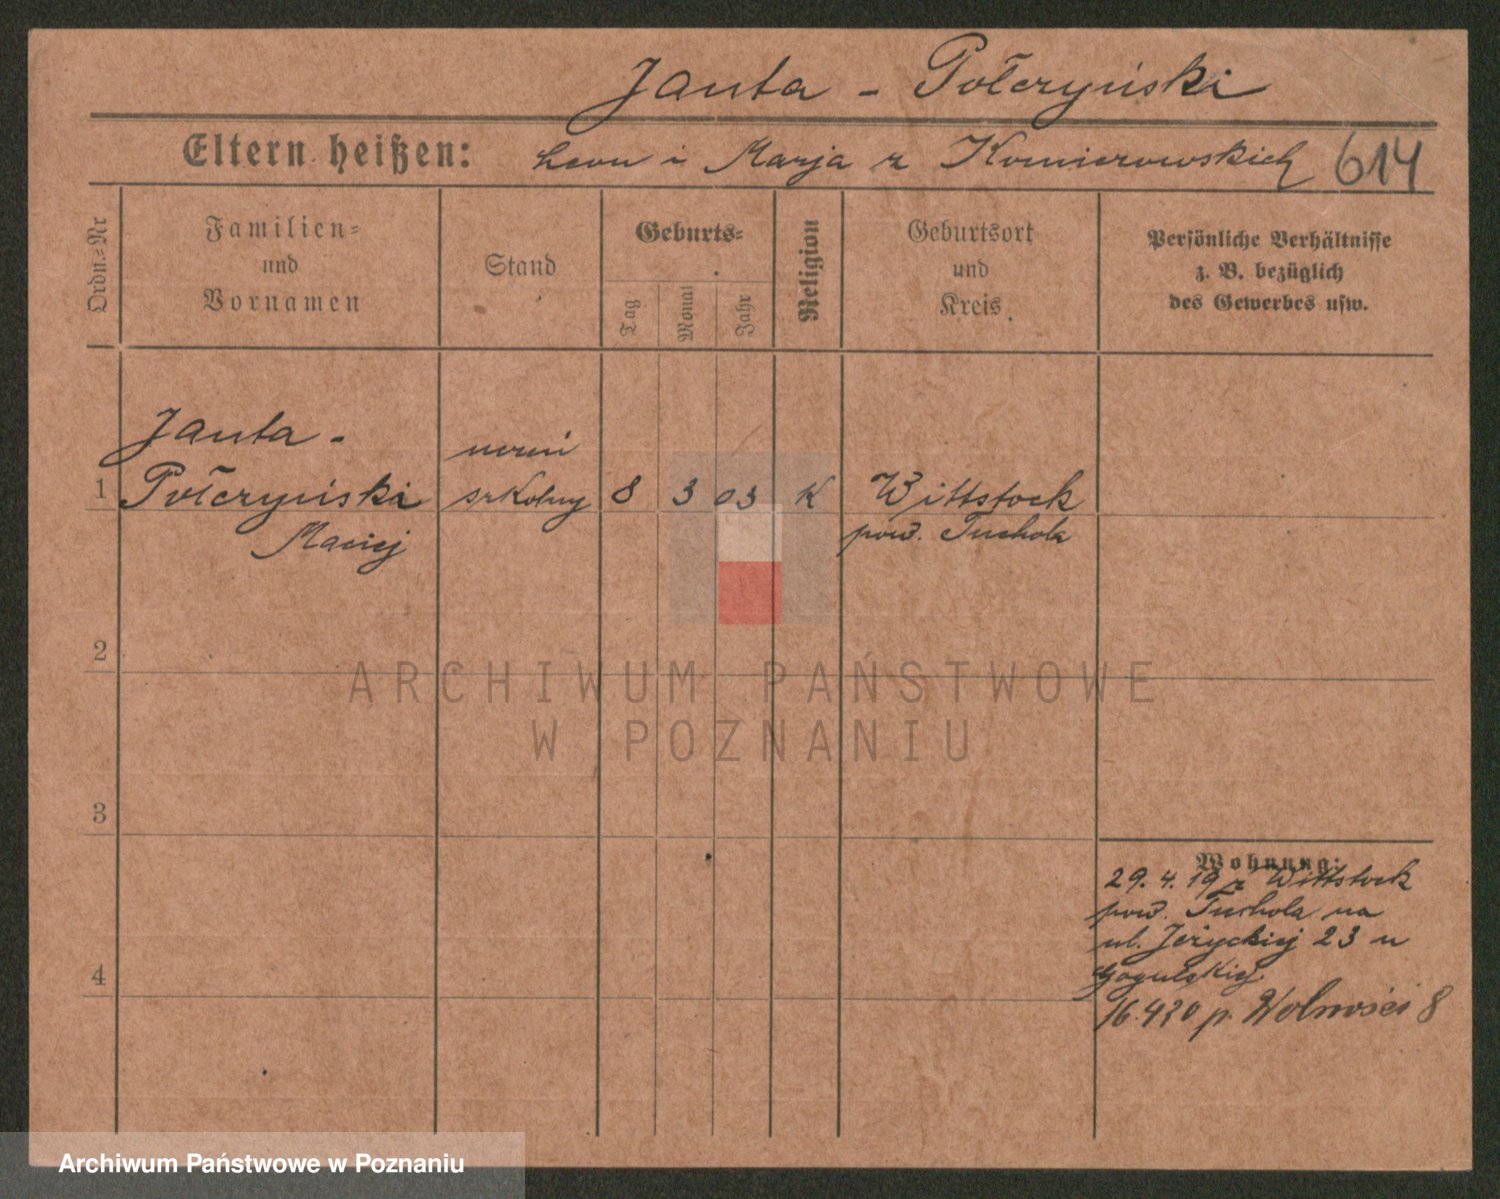 Janta - Połczyński
Eltern heißen: Leon i Marja z Komierowskich 614
Ordn.-Nr
Familien-
und
Vornamen
Stand
Geburts-
Tag
Monat
Jahr
Religion
Geburtsort
und
Kreis
Persönliche Verhältnisse
z. B. bezüglich
des Gewerbes usw.
Janta -
uczeń
1 Połczyński szkolny 8 3 03 K Wittstock
Maciej pow. Tuchola
2
3
4
Wohnung:
29. 4. 19 z Wittstock
pow. Tuchola na
ul. Jeżyckiej 23 u
16.4 20 p. Wolności 8
ARCHIWUM PAŃSTWOWE
W POZNANIU
Archiwum Państwowe w Poznaniu